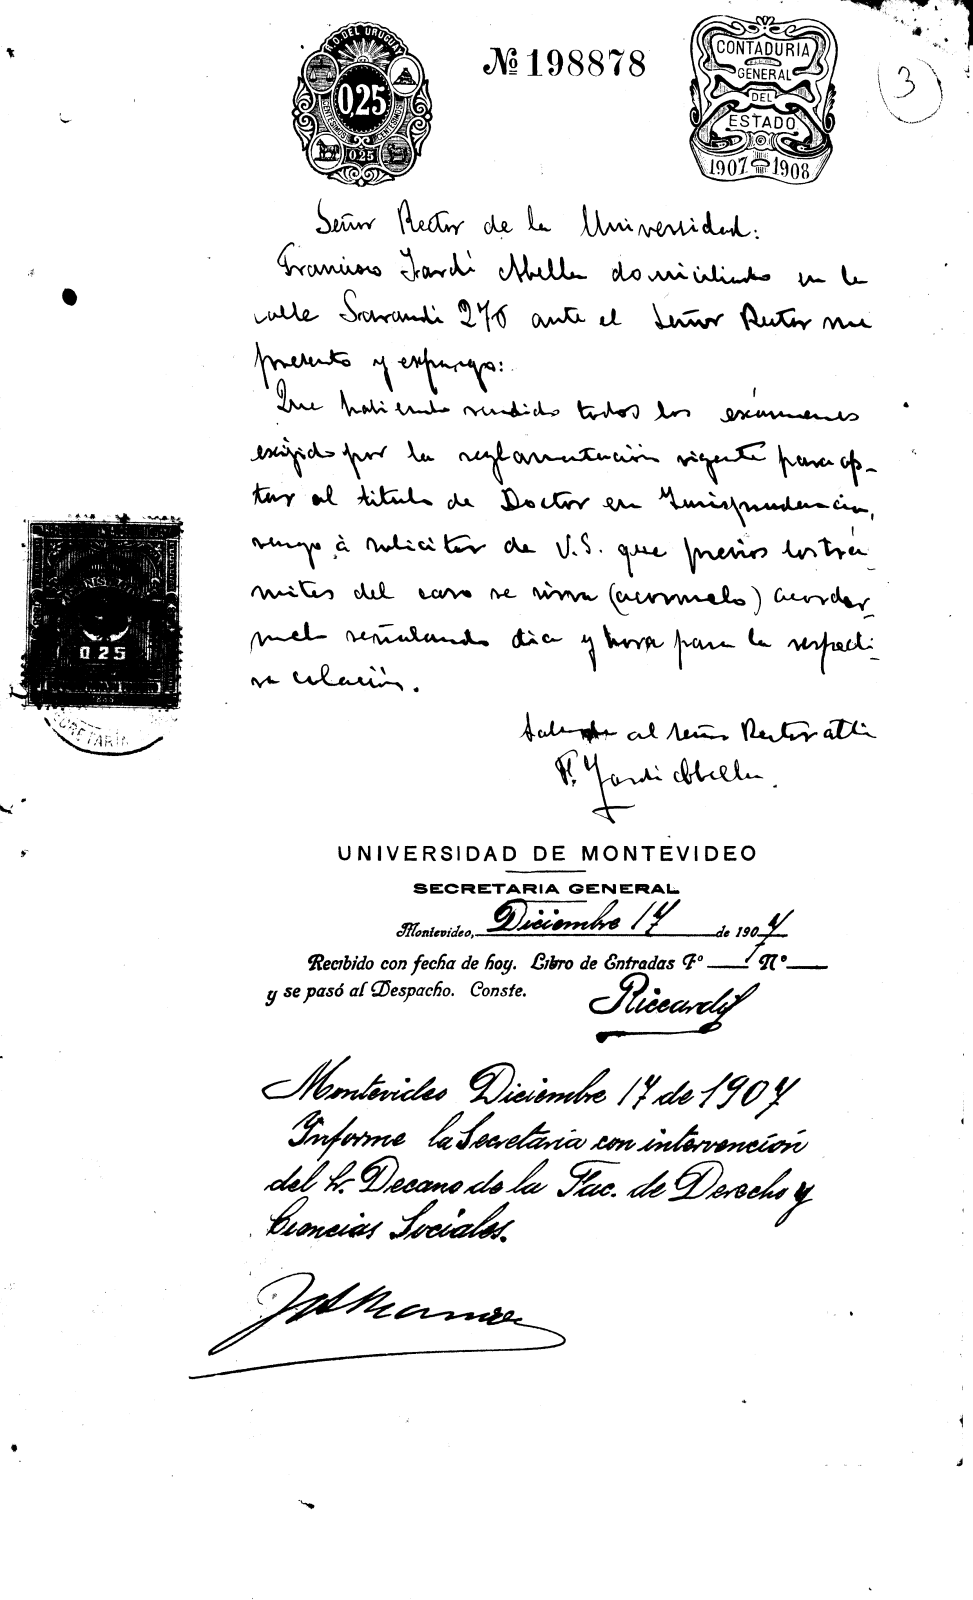 R.O. DEL URUGUAY
0,25
0.25
№ 198878
CONTADURIA
GENERAL
DEL
ESTADO
1907 1908
3
Señor Rector de la Universidad:
Francisco Jardí Abella domiciliado en la
calle Sarandi 270 ante el Señor Rector me
presento y expongo:
Que habiendo rendido todos los exámenes
exijido por la reglamentación vigente para op-
tar al titulo de Doctor en Jurisprudencia,
vengo à solicitar de V.S. que previos los trá
mites del caso se sirva (acormelo) acordar
melo señalando dia y hora para la respecti-
va colación.
Saluda al señor Rector atte
F. Jardi Abella.
0 25
SECRETARIA
UNIVERSIDAD DE MONTEVIDEO
SECRETARIA GENERAL
Montevideo, Diciembre 17 de 1907
Recibido con fecha de hoy. Libro de Entradas Fº Nº
y se pasó al Despacho. Conste.
Riccardi
Montevideo Diciembre 17 de 1907
Informe la Secretaría con intervención
del Sr. Decano de la Fac. de Derecho y
Ciencias Sociales.